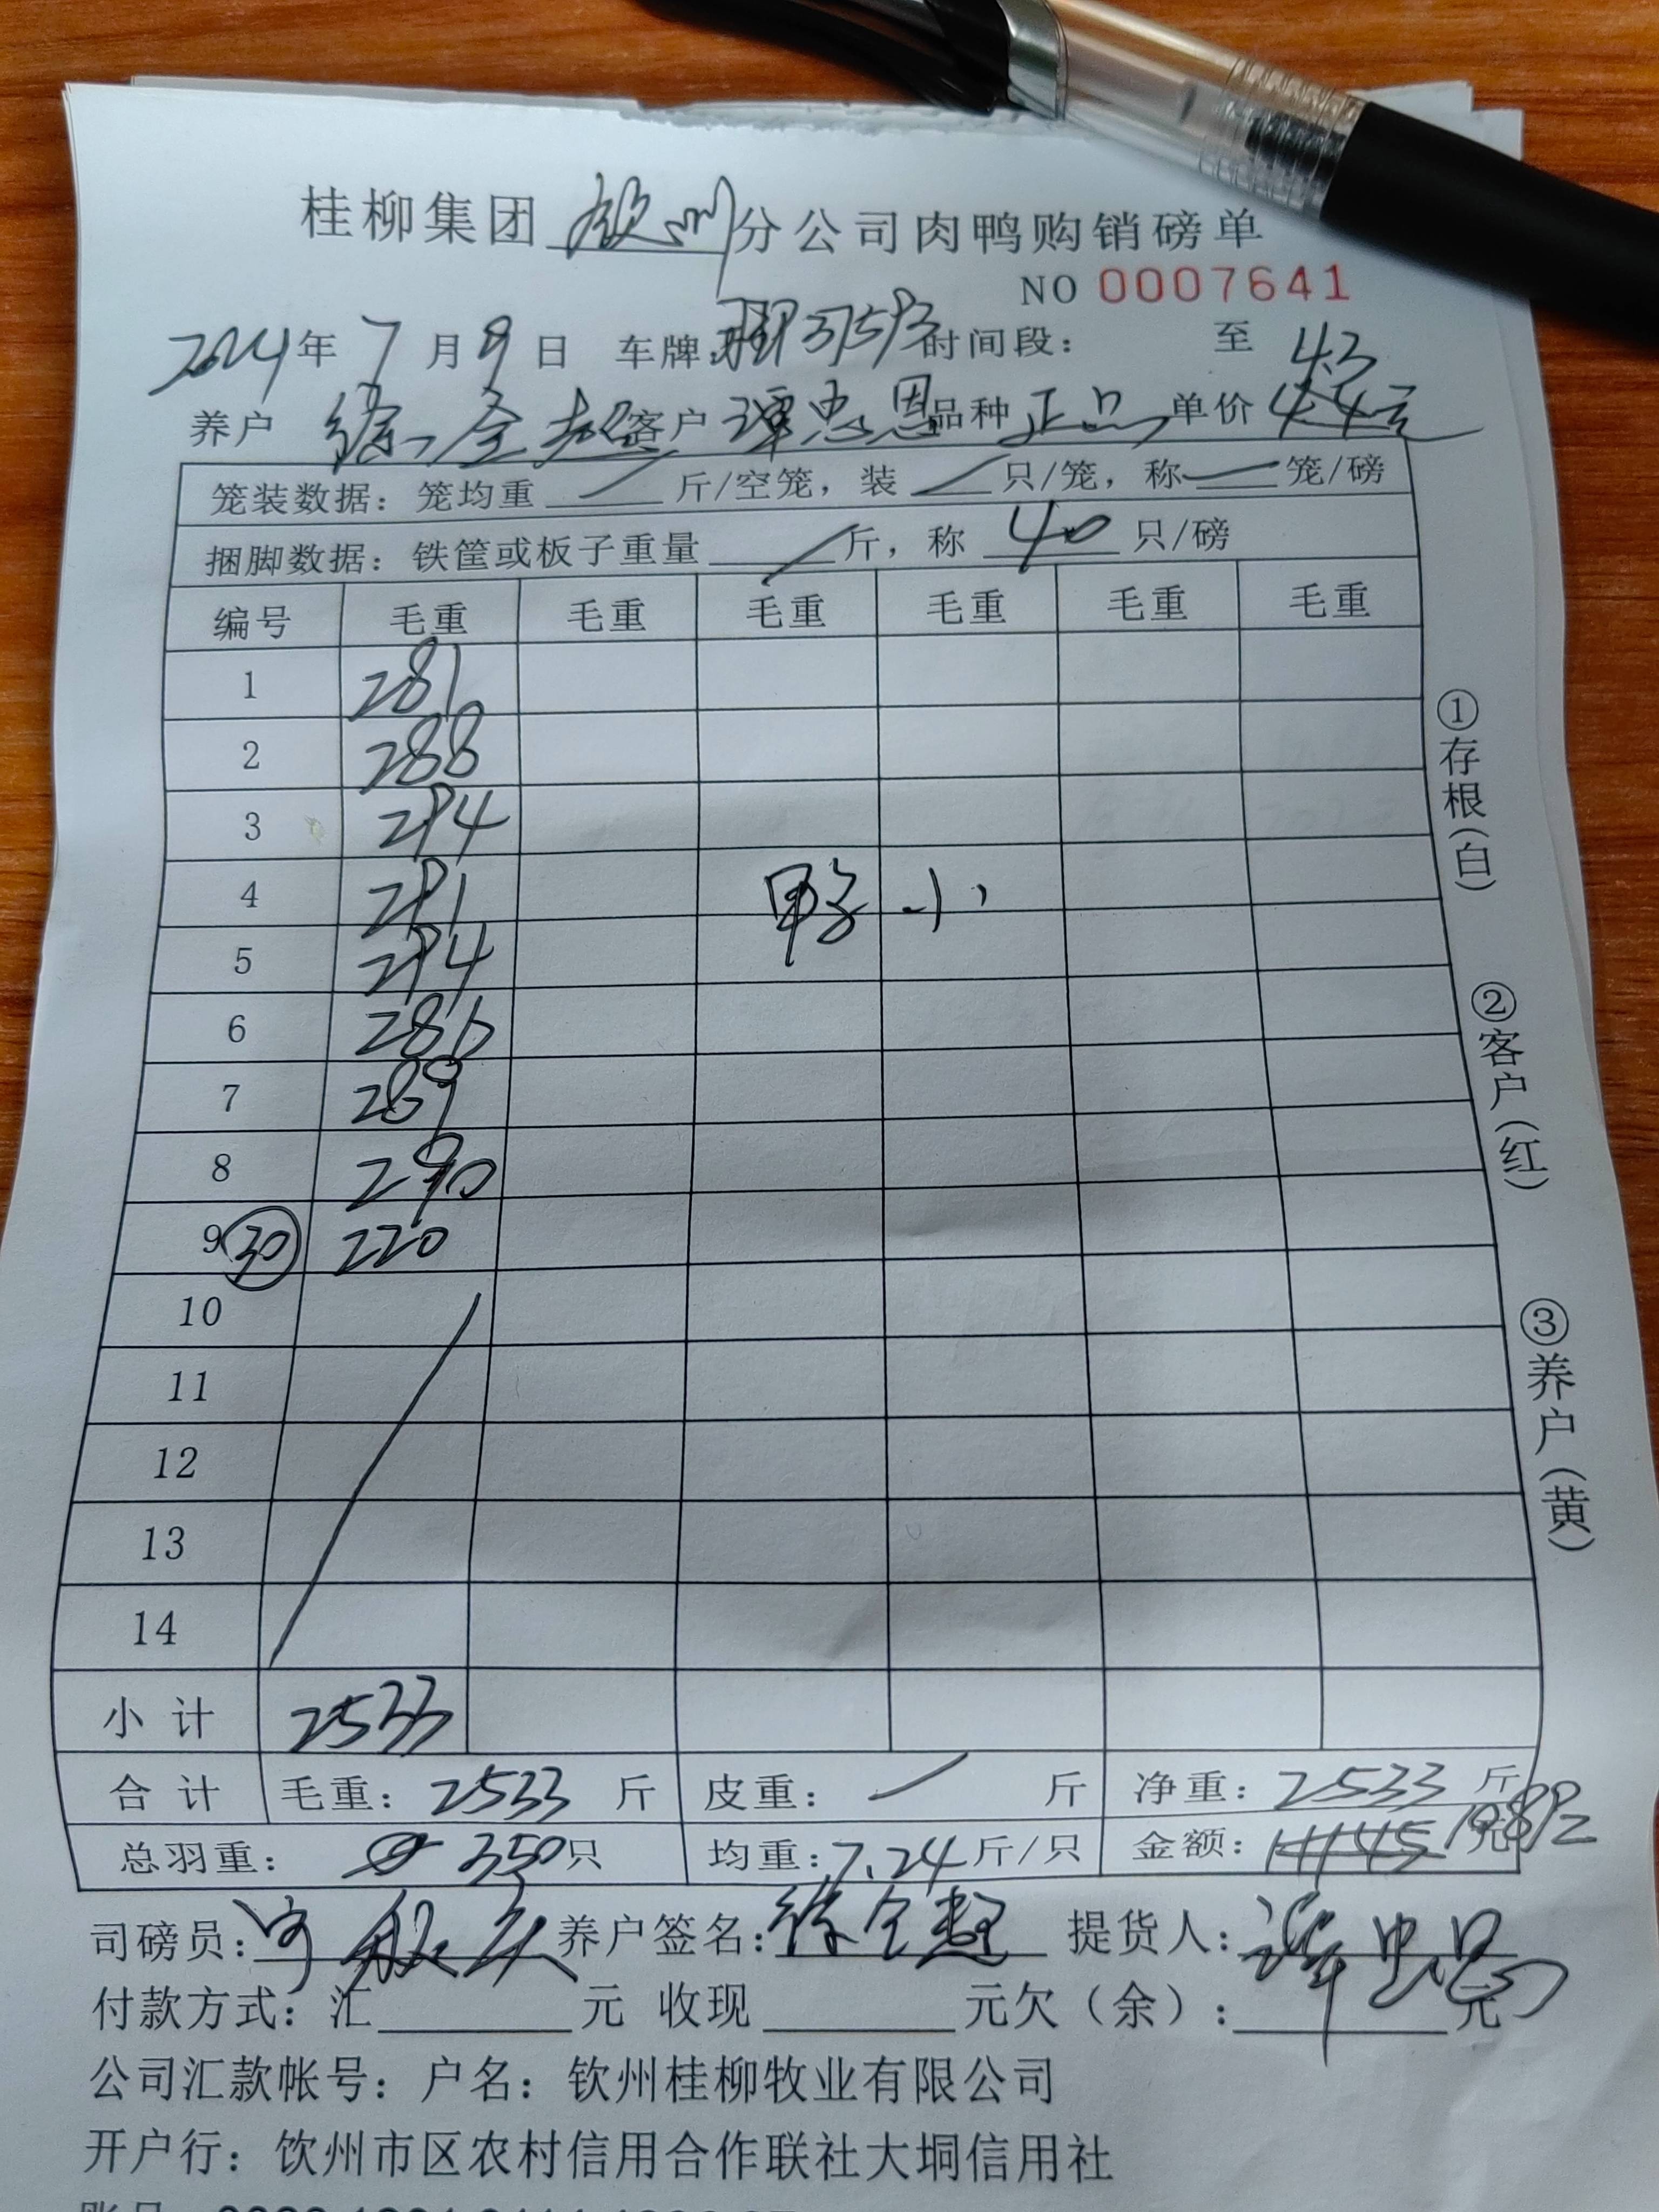 桂柳集团 钦州 分公司肉鸭购销磅单
NO 0007641
2024 年 7 月 9 日 车牌: 时间段: 至
4.3
养户 徐全超 客户 谭忠恩 品种 正品 单价 4.4元
笼装数据: 笼均重 / 斤/空笼, 装 / 只/笼, 称 / 笼/磅
捆脚数据: 铁筐或板子重量 / 斤, 称 40 只/磅
编号 毛重 毛重 毛重 毛重 毛重 毛重
1 281
2 288
3 294
4 291
5 294
6 286
7 289
8 290
9 30 220
10
11
12
13
14
鸭子小
小计 2533
合计 毛重: 2533 斤 皮重: / 斤 净重: 2533 斤
总羽重: 350 只 均重: 7.24 斤/只 金额: 11145 元 10892
司磅员: 养户签名: 徐全超 提货人: 谭忠恩
付款方式: 汇 元 收现 元欠(余): 元
公司汇款帐号: 户名: 钦州桂柳牧业有限公司
开户行: 饮州市区农村信用合作联社大垌信用社
①存根(白)
②客户(红)
③养户(黄)